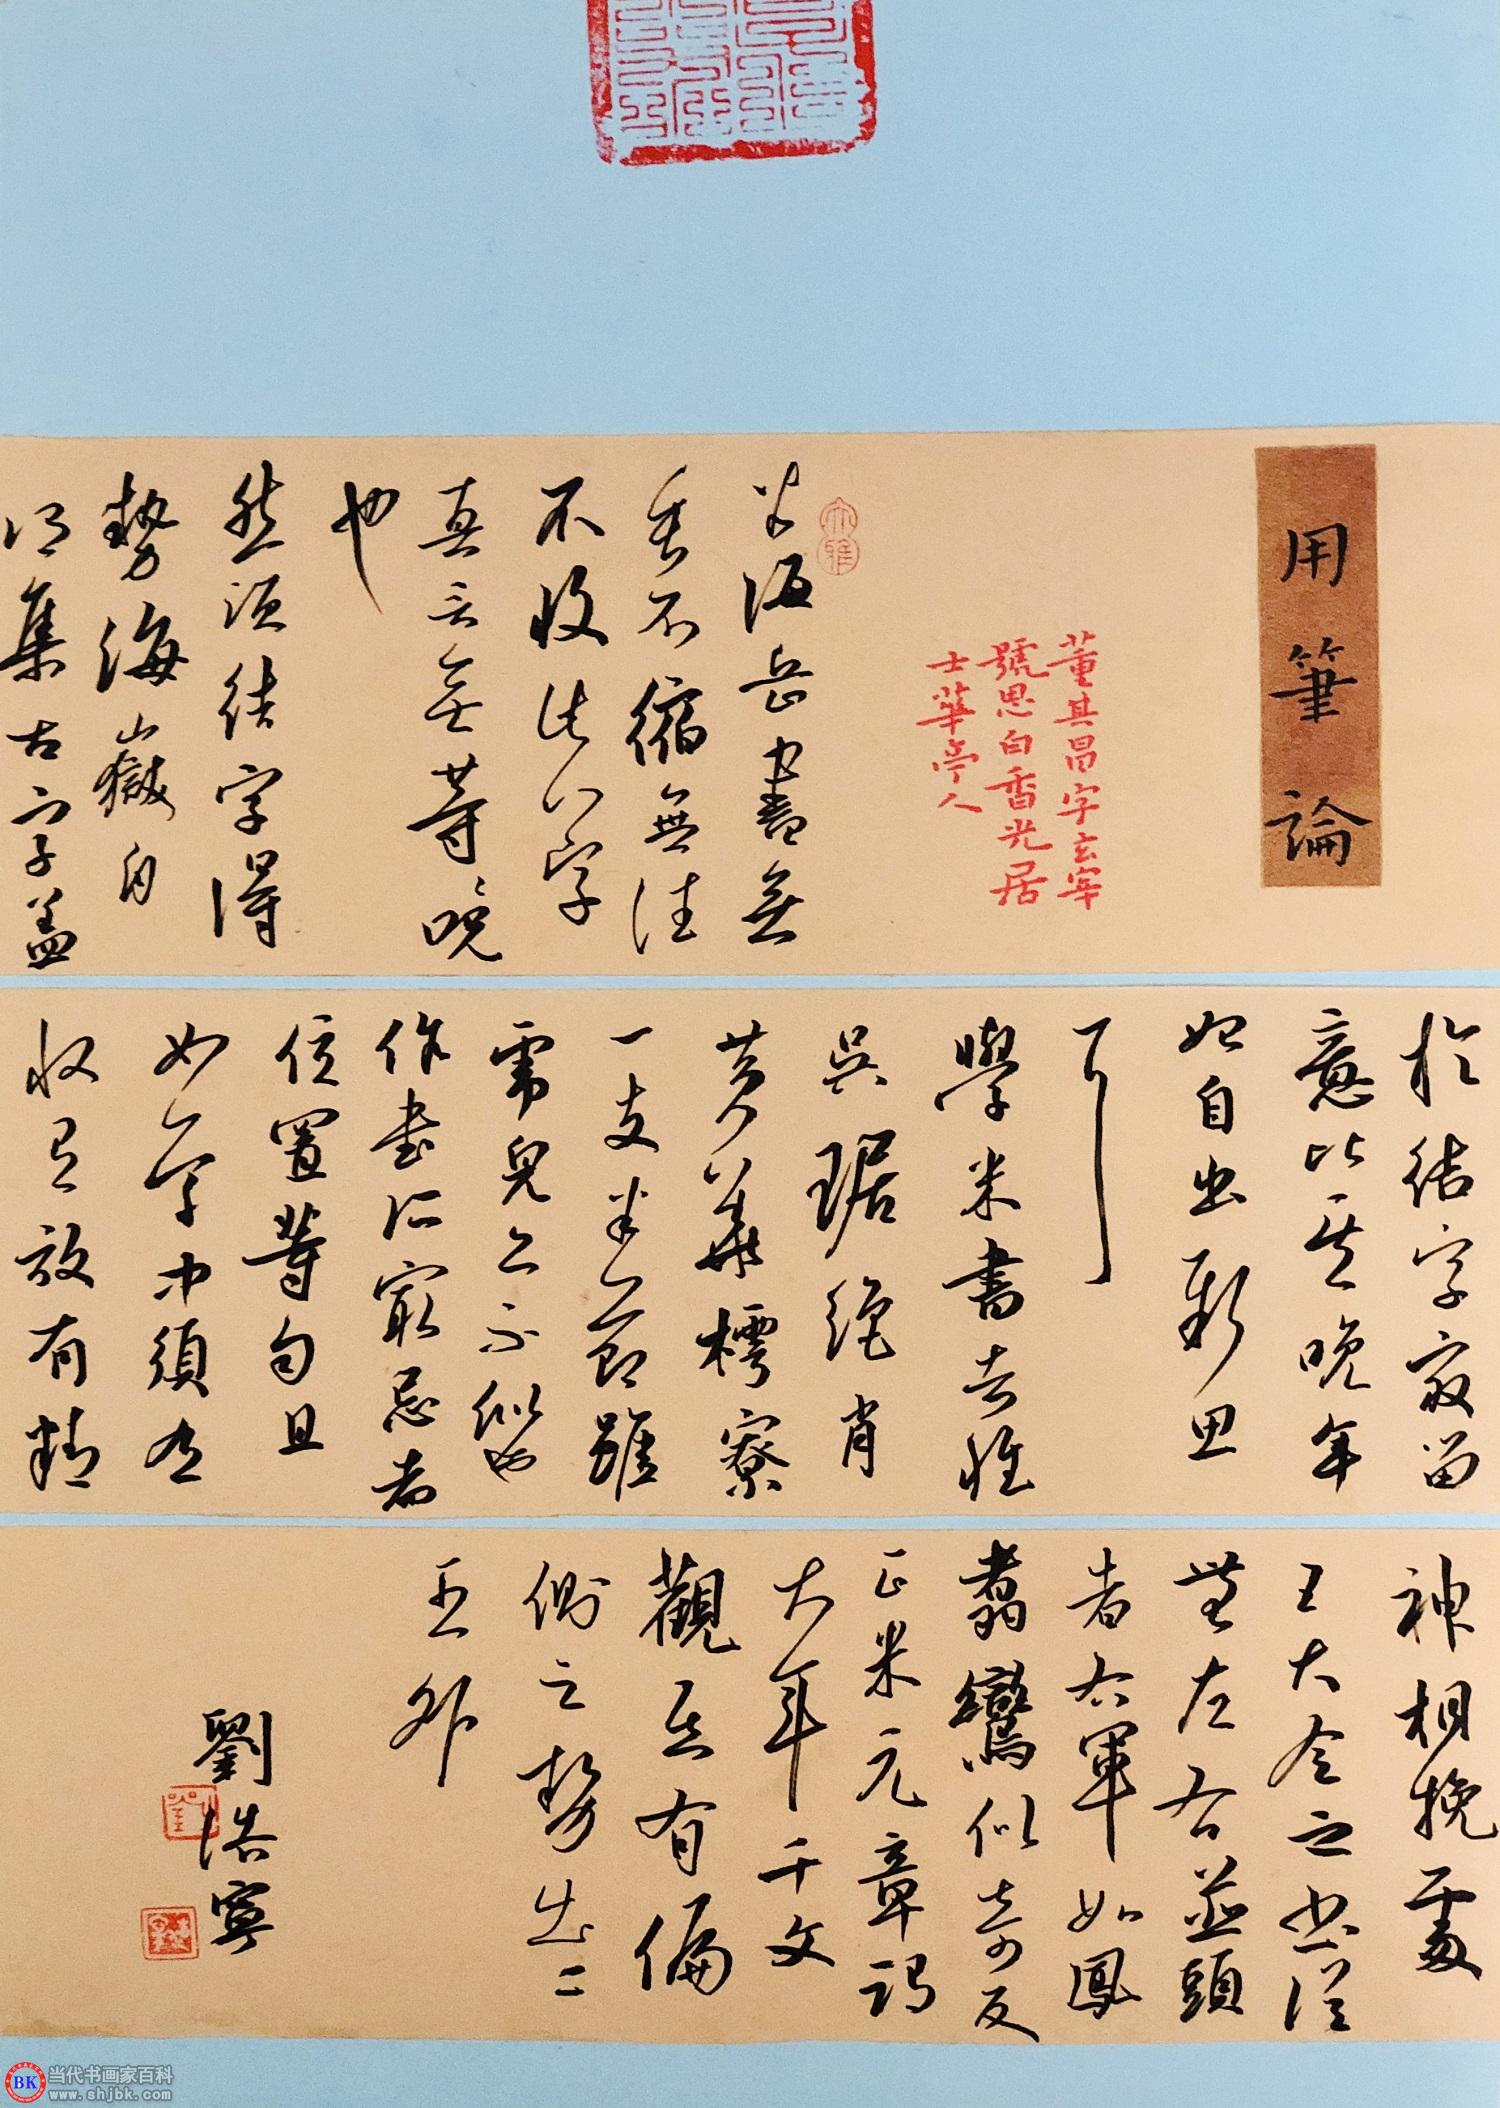 用筆論
董其昌字玄宰
號思白香光居
士華亭人
米海岳書無
垂不縮無往
不收此八字
真言無等等咒
也
然須結字得
勢海嶽自
謂集古字蓋
於結字最留
意比其晚年
始自出新意
耳
學米書者惟
吳琚絕肖
黃華樗寮
一支半節雖
虎兒亦不似也
作書所最忌者
位置等勻且
如一字中須有
收有放有精
神相挽處
王大令之書從
無左右並頭
者右軍如鳳
翥鸞翔似奇反
正米元章謂
大年千文
觀其有偏
側之勢出二
王外
劉浩寧
大雅
BK 当代书画家百科
www.shjbk.com